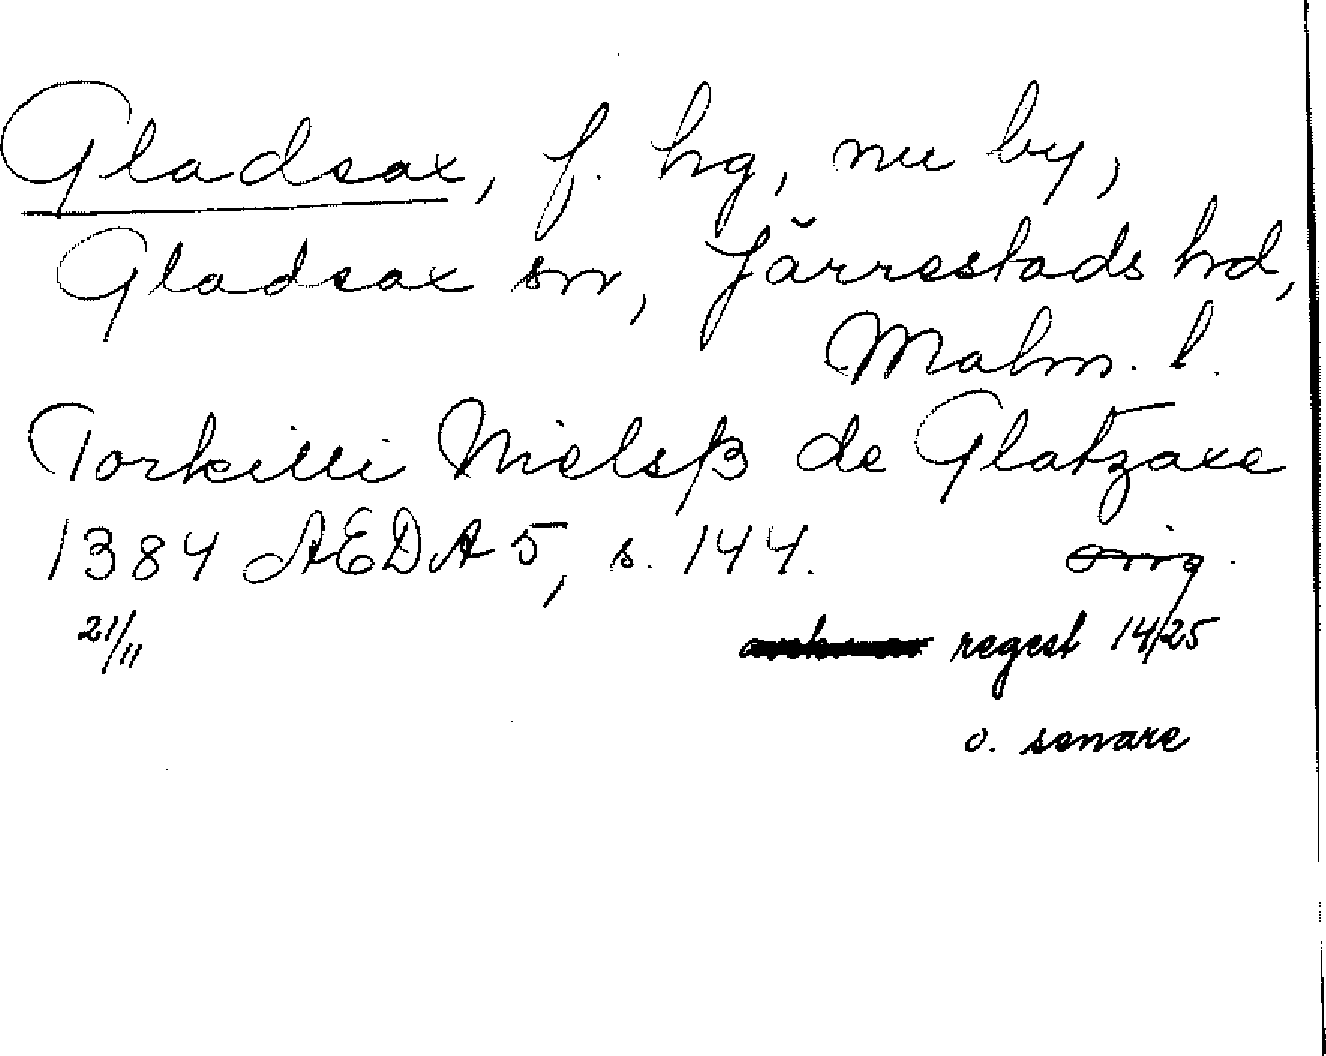 Gladsax, f. hg, nu by,
Gladsax sn, Järrestads hd,
Malm. l.
Torkilli Nielsß de Glatzaxe
1384 AEDA 5, s. 144. orig.
21/11 regest 14/25
o. senare